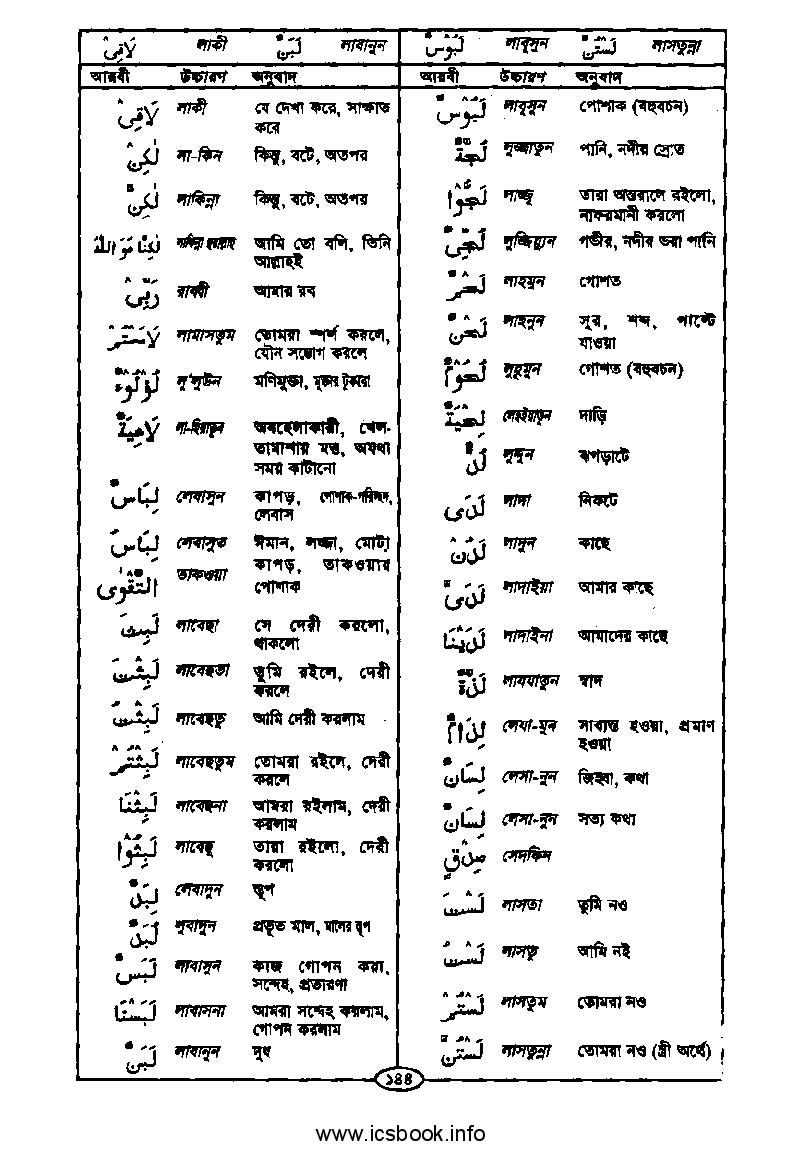 لَاقِىْ লাকী لَبَنٌ লাবানুন
আরবী উচ্চারণ অনুবাদ
لَاقِىْ লাকী যে দেখা করে, সাক্ষাত
করে
لٰكِنْ লা-কিন কিন্তু, বটে, অতপর
لٰكِنَّ লাকিন্না কিন্তু, বটে, অতপর
لٰكِنَّا هُوَ اللّٰهُ আমি তো বলি, তিনি
আল্লাহই
رَبِّىْ রাব্বী আমার রব
لَامَسْتُمْ লামাসতুম তোমরা স্পর্শ করলে,
যৌন সম্ভোগ করলে
لُؤْلُوءٌ লু'লুউন মণিমুক্তা, মুক্তার টুকরা
لَاهِيَةً লা-হিয়াতুন অবহেলাকারী, খেল-
তামাশায় মত্ত, অযথা
সময় কাটানো
لِبَاسٌ লেবাসুন কাপড়, পোশাক-পরিচ্ছদ,
লেবাস
لِبَاسُ লেবাসুত ঈমান, লজ্জা, মোটা
التَّقْوٰى তাকওয়া কাপড়, তাকওয়ার
পোশাক
لَبِثَ লাবেছা সে দেরী করলো,
থাকলো
لَبِثْتَ লাবেছতা তুমি রইলে, দেরী
করলে
لَبِثْتُ লাবেছতু আমি দেরী করলাম
لَبِثْتُمْ লাবেছতুম তোমরা রইলে, দেরী
করলে
لَبِثْنَا লাবেছনা আমরা রইলাম, দেরী
করলাম
لَبِثُوْا লাবেছু তারা রইলো, দেরী
করলো
لِبَدٌ লেবাদুন স্তূপ
لُبَدٌ লুবাদুন প্রভূত মাল, মালের স্তূপ
لَبْسٌ লাবাসুন কাজ গোপন করা,
সন্দেহ, প্রতারণা
لَبَسْنَا লাবাসনা আমরা সন্দেহ করলাম,
গোপন করলাম
لَبَنٌ লাবানুন দুধ
لَبُوْسٌ লাবূসুন لَسْتُنَّ লাসতুন্না
আরবী উচ্চারণ অনুবাদ
لَبُوْسٌ লাবূসুন পোশাক (বহুবচন)
لُجَّةٌ লুজ্জাতুন পানি, নদীর স্রোত
لَجُّوْا লাজ্জূ তারা অন্তরালে রইলো,
নাফরমানী করলো
لُجِّىٌّ লুজ্জিয়্যুন গভীর, নদীর ভরা পানি
لَحْمٌ লাহমুন গোশত
لَحْنٌ লাহনুন সূর, শব্দ, পাল্টে
যাওয়া
لُحُوْمٌ লুহুমুন গোশত (বহুবচন)
لِحْيَةٌ লেহইয়াতুন দাড়ি
لُدٌّ লুদ্দুন ঝগড়াটে
لَدَى লাদা নিকটে
لَدُنْ লাদুন কাছে
لَدَىَّ লাদাইয়া আমার কাছে
لَدَيْنَا লাদাইনা আমাদের কাছে
لَذَّةٌ লাযযাতুন স্বাদ
لِزَامٌ লেযা-মুন সাব্যস্ত হওয়া, প্রমাণ
হওয়া
لِسَانٌ লেসা-নুন জিহ্বা, কথা
لِسَانَ লেসা-নুন সত্য কথা
صِدْقٍ সেদকিন
لَسْتَ লাসতা তুমি নও
لَسْتُ লাসতু আমি নই
لَسْتُمْ লাসতুম তোমরা নও
لَسْتُنَّ লাসতুন্না তোমরা নও (স্ত্রী অর্থে)
১৪৪
www.icsbook.info